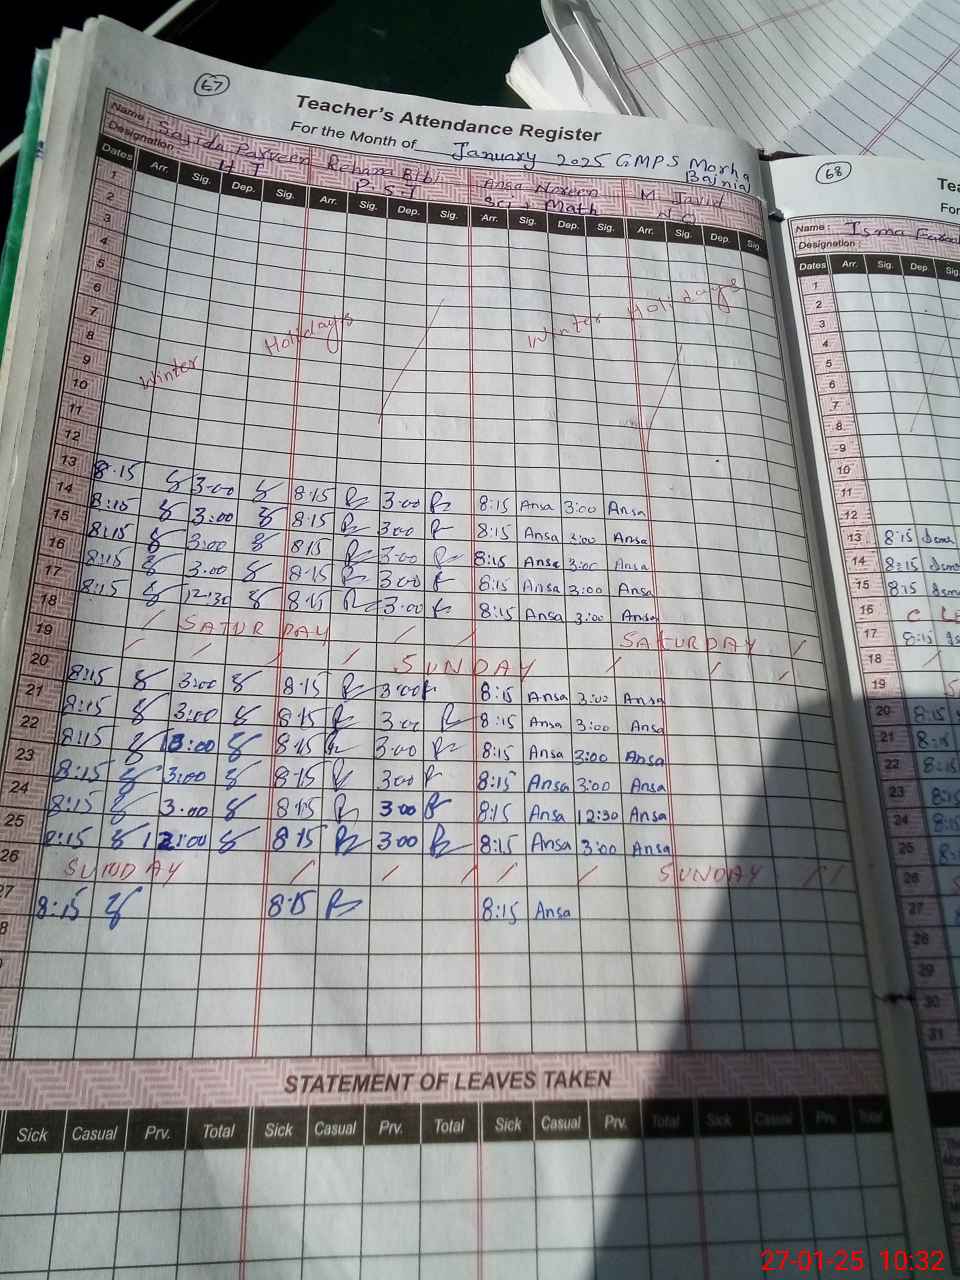 67
Teacher's Attendance Register
For the Month of January 2025 GMPS Morha
Name: Sajida Parveen Rehana Bibi Ansa Noreen M. Javid
Designation: H T P.S.T Sci, Math N.Q
Dates Arr. Sig. Dep. Sig. Arr. Sig. Dep. Sig. Arr. Sig. Dep. Sig. Arr. Sig. Dep. Sig.
1
2
3
4
5
6
7
8
9
10
11
12
Winter Holidays Winter Holidays
13 8:15 3:00 8:15 3:00 8:15 Ansa 3:00 Ansa
14 8:15 3:00 8:15 3:00 8:15 Ansa 3:00 Ansa
15 8:15 3:00 815 3:00 8:15 Ansa 3:00 Ansa
16 8:15 3:00 8:15 3:00 8:15 Ansa 3:00 Ansa
17 8:15 12:30 8:15 3:00 8:15 Ansa 3:00 Ansa
18 SATURDAY SATURDAY
19 SUNDAY
20 8:15 3:00 8:15 3:00 8:15 Ansa 3:00 Ansa
21 8:15 3:00 8:15 3:00 8:15 Ansa 3:00 Ansa
22 8:15 3:00 8:15 3:00 8:15 Ansa 3:00 Ansa
23 8:15 3:00 8:15 3:00 8:15 Ansa 3:00 Ansa
24 8:15 3:00 8:15 3:00 8:15 Ansa 12:30 Ansa
25 8:15 12:00 8:15 3:00 8:15 Ansa 3:00 Ansa
26 SUNDAY SUNDAY
27 8:15 8:15 8:15 Ansa
8
STATEMENT OF LEAVES TAKEN
Sick Casual Prv. Total Sick Casual Prv. Total Sick Casual Prv. Total Sick Casual Prv. Total
68
Tea
For
Name: Isma
Designation:
Dates Arr. Sig. Dep. Sig.
1
2
3
4
5
6
7
8
9
10
11
12
13 8:15
14 8:15
15 8:15
16 C
17 8:15
18
19
20 8:15
21 8:15
22 8:15
23 8:15
24 8:15
25 8:
26
27
28
29
30
31
27-01-25 10:32